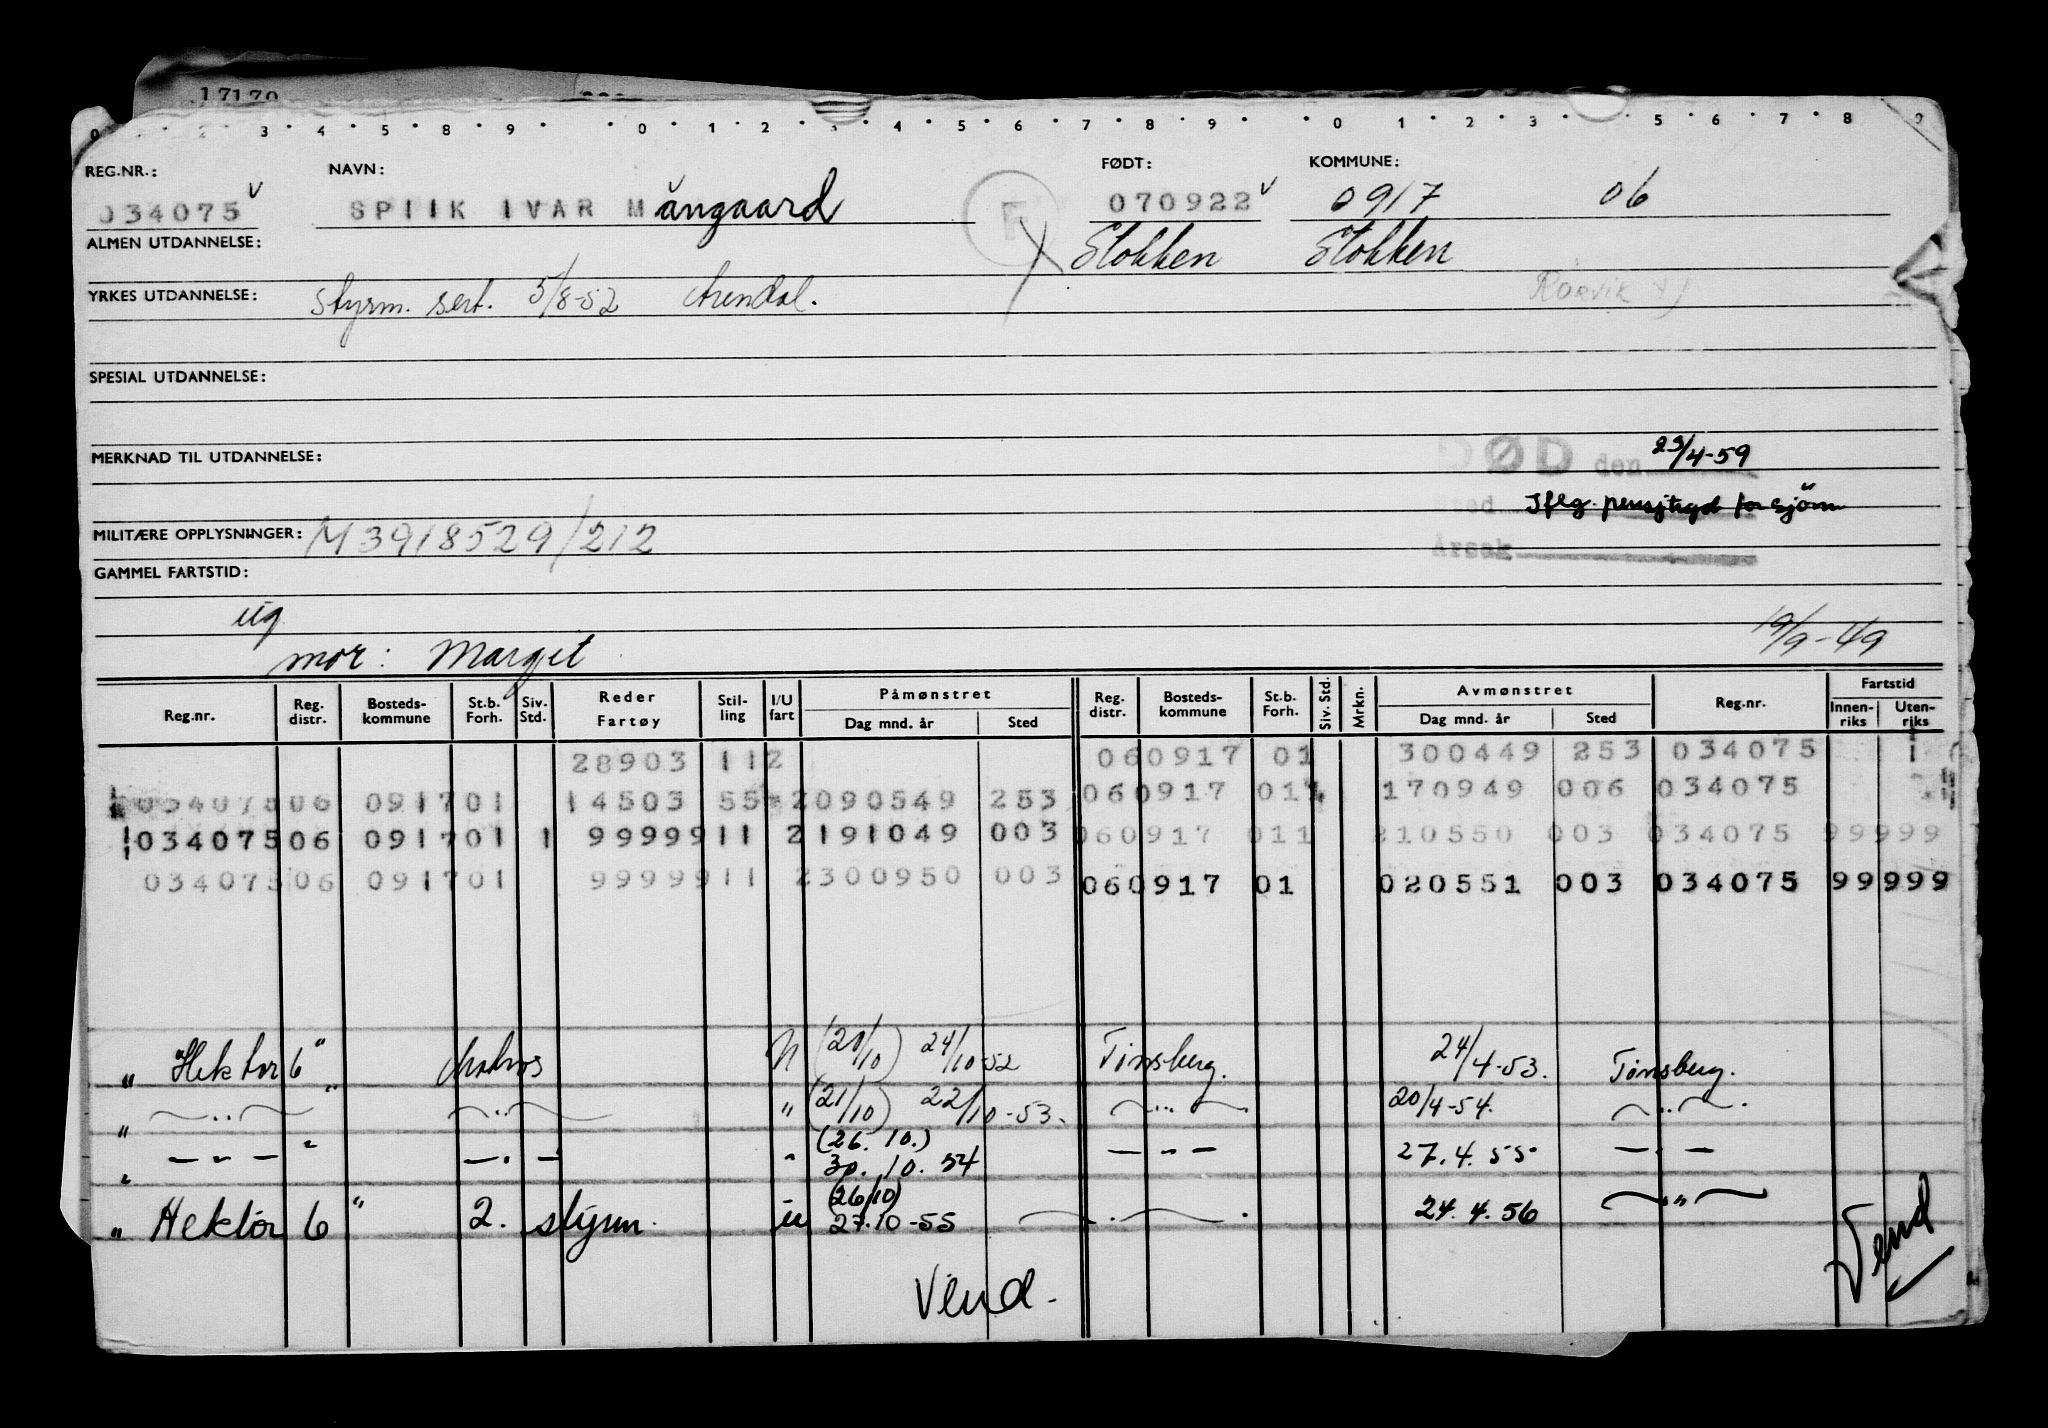 17170
0 2 3 4 5 8 9 0 1 2 3 4 5 6 7 8 9 0 1 2 3 5 6 7 8 9
REG.NR.: NAVN: FØDT: KOMMUNE:
034075 v SPIIK IVAR Mångaard F 070922 v 0917 06
ALMEN UTDANNELSE: Stokken Stokken
YRKES UTDANNELSE: Styrm. sert. 5/8-52 Arendal. Rørvik
SPESIAL UTDANNELSE:
MERKNAD TIL UTDANNELSE: DØD den 23/4-59
Sted Iflg. pensjtrgd for sjöm
MILITÆRE OPPLYSNINGER: M3918529/212 Årsak
GAMMEL FARTSTID:
ug
mor: Margit 19/9-49
Reg.nr. Reg. distr. Bosteds-kommune St.b. Forh. Siv. Std. Reder Fartøy Stil-ling I/U fart Påmønstret Dag mnd. år Sted Reg. distr. Bosteds-kommune St.b. Forh. Siv. Std. Mrkn. Avmønstret Dag mnd. år Sted Reg.nr. Fartstid Innen-riks Uten-riks
28903 112 060917 01 300449 253 034075
034075 06 0917 01 14503 55 2 090549 253 060917 011 170949 006 034075
034075 06 0917 01 1 99999 11 2 191049 003 060917 011 210550 003 034075 99999
034075 06 0917 01 99999 11 2 300950 003 060917 01 020551 003 034075 99999
„ Hektor 6 " Matros U (20/10) 24/10-52 Tönsberg. 24/4-53. Tönsberg.
„ —„— " —„— " (21/10) 22/10-53. —„— 20/4-54. —„—
„ —„— " —„— " (26.10.) 30.10.54 —„— 27.4.55 —„—
„ Hektor 6 " 2. styrm. u (26/10) 27.10-55 —„— 24.4.56 —„—
Vend
Vend.